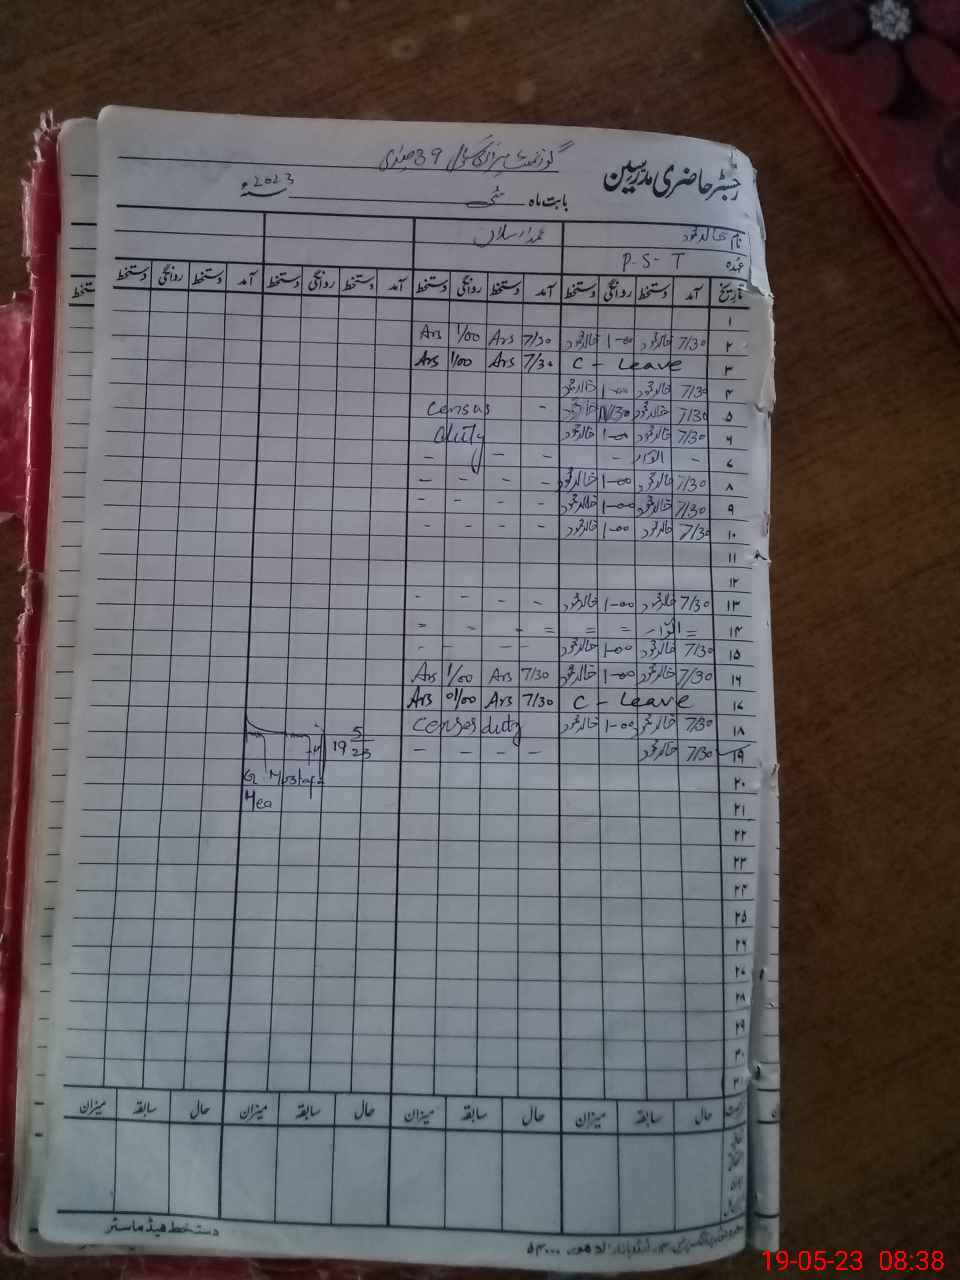 رجسٹر حاضری مدرسین
گورنمنٹ پرائمری سکول 39
بابت ماہ مئی سنہ 2023ء
نام خالد محمود محمد ارسلان
عہدہ P-S-T
تاریخ آمد دستخط روانگی دستخط آمد دستخط روانگی دستخط آمد دستخط روانگی دستخط آمد دستخط روانگی دستخط
۱
۲ 7/30 خالد محمود 1-00 خالد محمود 7/30 Ars 1/00 Ars
۳ C - Leave 7/30 Ars 1/00 Ars
۴ 7/30 خالد محمود 1-00 خالد محمود
۵ 7/30 خالد محمود 11/30 خالد محمود - Census
۶ 7/30 خالد محمود 1-00 خالد محمود duty
۷ - اتوار - - - - -
۸ 7/30 خالد محمود 1-00 خالد محمود - - - -
۹ 7/30 خالد محمود 1-00 خالد محمود - - - -
۱۰ 7/30 خالد محمود 1-00 خالد محمود - - - -
۱۱
۱۲
۱۳ 7/30 خالد محمود 1-00 خالد محمود - - - -
۱۴ = اتوار = = = - - =
۱۵ 7/30 خالد محمود 1-00 خالد محمود - - - -
۱۶ 7/30 خالد محمود 1-00 خالد محمود 7/30 Ars 1/00 Ars
۱۷ C - Leave 7/30 Ars 01/00 Ars
۱۸ 7/30 خالد محمود 1-00 خالد محمود Censes duty
۱۹ 7/30 خالد محمود - - - - 19 5/23
۲۰ G Mustafa
۲۱ Mea
۲۲
۲۳
۲۴
۲۵
۲۶
۲۷
۲۸
۲۹
۳۰
۳۱
حال سابقہ میزان حال سابقہ میزان حال سابقہ میزان حال سابقہ میزان
دستخط ہیڈ ماسٹر
اردو بازار لاہور
19-05-23 08:38